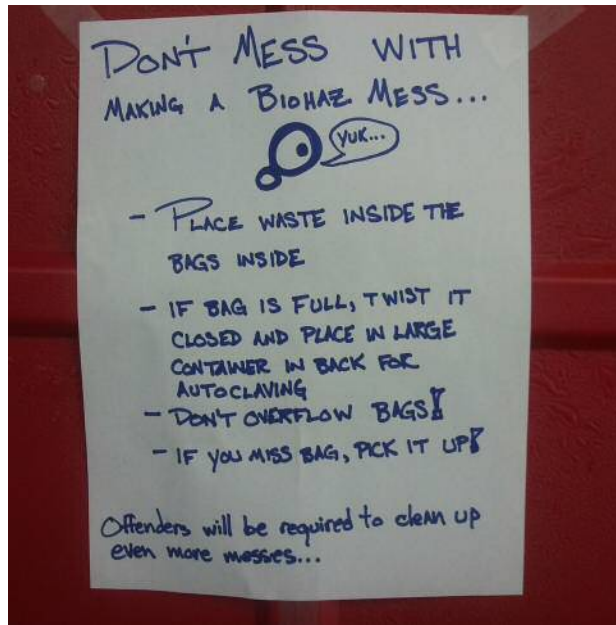 DON'T MESS WITH
MAKING A BIOHAZ MESS...
YUK...
- PLACE WASTE INSIDE THE
BAGS INSIDE
- IF BAG IS FULL, TWIST IT
CLOSED AND PLACE IN LARGE
CONTAINER IN BACK FOR
AUTOCLAVING
- DON'T OVERFLOW BAGS!
- IF YOU MISS BAG, PICK IT UP!
Offenders will be required to clean up
even more messes...